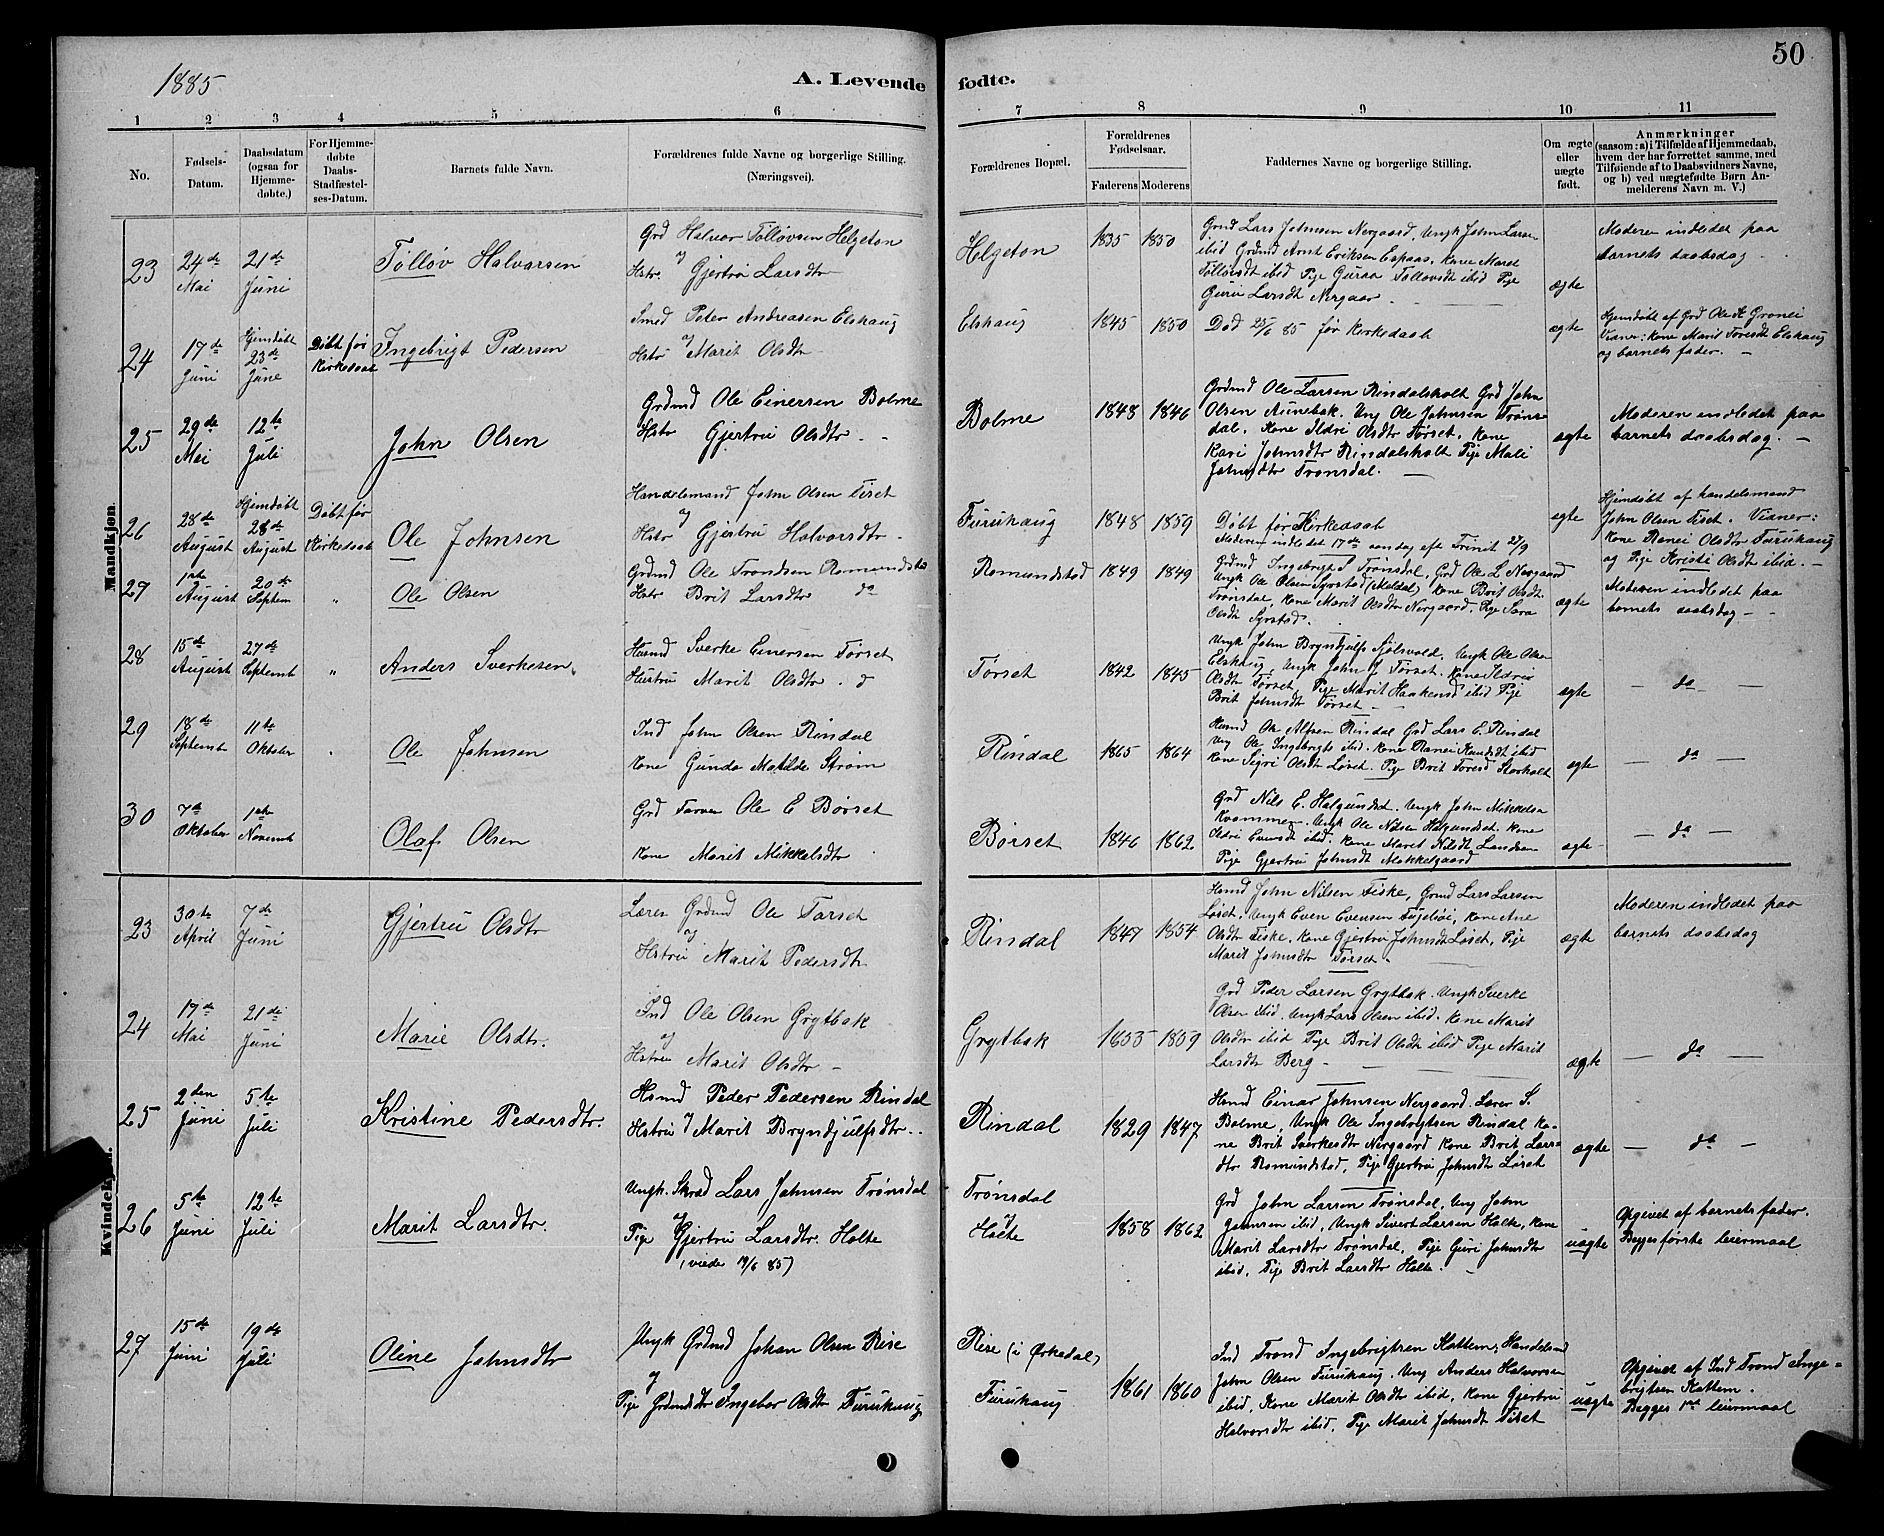 50
1885
A. Levende fødte.
1 2 3 4 5 6 7 8 9 10 11
No.
Fødsels-Datum.
Daabsdatum (ogsaa for Hjemme-døbte.)
For Hjemme-døbte Daabs-Stadfæstel-ses-Datum.
Barnets fulde Navn.
Forældrenes fulde Navne og borgerlige Stilling. (Næringsvei).
Forældrenes Bopæl.
Forældrenes Fødselsaar.
Faderens Moderens
Faddernes Navne og borgerlige Stilling.
Om ægte eller uægte født.
Anmærkninger (saasom: a) i Tilfælde af Hjemmedaab, hvem der har forrettet samme, med Tilføiende af to Daabsvidners Navne, og b) ved uægtefødte Børn Anmelderens Navn m. V.)
Mandkjøn.
23 24de Mai 21de Juni Tølløv Halvorsen
Grd Halvor Tølløvsen Helgeton
Hstr Gjertru Larsdtr
Helgeton 1835 1850
Grmd Lars Johnsen Nergaard, Ungk John Larsen
ibid Grdmd Arnt Eriksen Espaas, Kone Maret
Tølløvsdt ibid Pige Guraa Tøllovsdt ibid Pige
Guru Larsdt Nergaar
ægte
Moderen indledet paa
barnets daabsdag
24 17de Juni Hjemdøbt 23de June Døbt før Kirkedaab Ingebrigt Pedersen
Smed Peter Andreasen Elshaug
Hstr Marit Olsdtr
Elshaug 1845 1850
Død 25/6 85 før Kirkedaab
ægte
Hjemdøbt af Grd Ole K Grønli
Vidner: Kone Marit Toresdt Elshaug
og barnets fader.
25 29de Mai 12te Juli John Olsen
Grdmd Ole Einersen Bolme
Hstr Gjertru Olsdtr
Bolme 1848 1846
Grdmd Ole Larsen Rindalsholt Grd John
Olsen Aunebak. Ung Ole Johnsen Trøns-
dal. Kone Ildri Olsdtr Tørset, Kone
Kari Johnsdtr Rindalsholt Pige Mali
Johnsdtr Trønsdal.
ægte
Moderen indledet paa
barnets daabsdag.
26 28de August Hjemdøbt 28de August Døbt før Kirkedaab Ole Johnsen
Handelsmand John Olsen Tiset
Hstr Gjertru Halvorsdtr
Furuhaug 1848 1859
Døbt før Kirkedaab
Moderen indledet 17de søndag eft Trinit 27/9
ægte
Hjemdøbt af handelsmand
John Olsen Tiset. Vidner:
Kone Ranei Olsdtr Furuhaug
og Pige Kristi Olsdt ibid.
27 1ste August 20de Septem " Ole Olsen
Grdmd Ole Trondsen Romundstad
Hstr Brit Larsdtr do
Romundstad 1849 1849
Grdmd Ingebrigt S Trønsdal, Grd Ole L Nergaard
Ungk Ole Olsen Syrstad (Meldal) Kone Brit Olsdt
Trønsdal, Kone Marit Olsdtr Nergaard, Pige Sara
Olsdtr Syrstad.
ægte
Moderen indledet paa
barnets daabsdag
28 15de August 27de Septemb " Anders Sverkesen
Husmd Sverke Einersen Tørset
Hustru Marit Olsdtr. d
Tørset 1842 1845
Ungk John Bryndjulfs Sjølsvold, Ungk Ole Olsen
Elshaug, Ungk John J Tørset, Kone Ildrie
Olsdtr Tørset, Pige Marit Haakensd ibid Pige
Brit Johnsdt Tørset
ægte
do
29 18de Septemb 11te Oktober Ole Johnsen
Ind John Olsen Rindal
Kone Gunda Matilde Strøm
Rindal 1865 1864
Husmd Ole Rindal Grd Lars E. Rindal
Ung Ole Ingebrigts ibid. Kone Ranei Knudsdt ibid
Kone Sigri Olsdt Løset. Pige Brit Toresd Storholt
ægte
do
30 7de Oktober 1ste Novemb Olaf Olsen
Grd Farver Ole E Børset
Kone Marit Mikkelsdtr
Børset 1846 1862
Grd Nils E. Halgundset. Ungk John Mikkelsen
Kvammen. Ungk Ole Nilsen Halgundset. Kone
Ildri Evensdt ibid. Kone Maret Nilsdt Landsem
Pige Gjertru Johnsdt Mokkelgaard
ægte
do
Kvindekjøn.
23 30te April 7de Juni Gjertru Olsdtr
Lærer Grdmd Ole Tørset
Hstru Marit Pedersdtr
Rindal 1847 1854
Husmd John Nilsen Fiske, Grmd Lars Larsen
Løset, Ungk Even Evensen Fugelsøi, Kone Ane
Olsdtr Fiske, Kone Gjertru Johnsdt Løset, Pige
Marit Johnsdtr Tørset
ægte
Moderen indledet paa
barnets daabsdag
24 17de Mai 21de Juni Marie Olsdtr.
Ind Ole Olsen Grytbak
Hstru Marit Olsdtr
Grytbak 1853 1859
Grd Peder Larsen Grytbak. Ungk Sverke
Olsen ibid, Ungk Lars Olsen ibid. Kone Marit
Olsdtr ibid Pige Brit Olsdt ibid Pige Marit
Larsdtr Berg
ægte
do
25 2den Juni 5te Juli Kristine Pedersdtr.
Hsmd Peder Pedersen Rindal
Hstru Marit Bryndjulfsdtr.
Rindal 1829 1847
Hsmd Einar Johnsen Nergaard. Lærer S.
Bolme, Ungk Ole Ingebrigtsen Rindal Ko-
ne Brit Sverkesdtr Nergaard Kone Brit Lars-
dtr Romundstad, Pige Gjertru Johnsdt Løset
ægte
do
26 5te Juni 12te Juli Marit Larsdtr.
Ungk. Skræd Lars Johnsen Trønsdal
Pige Gjertru Larsdtr. Holte
(viede 19/6 85)
Trønsdal
Holte 1858 1862
Grd John Larsen Trønsdal, Ung John
Johnsen ibid, Ungk Sivert Larsen Holte, Kone
Marit Larsdtr Trønsdal, Pige Guri Johnsdtr
ibid, Pige Brit Larsdtr Holte.
uægte
Opgivet af barnets fader.
Begges første leiermaal
27 15de Juni 19de Juli Oline Johnsdtr
Ungk Grdmd Johan Olsen Rise
Pige Grdmdsdtr Ingebor Olsdt Furuhaug
Rise (i Ørkedal)
Furuhaug 1861 1860
Ind Trond Ingebrigtsen Kattem, Handelsmd
John Olsen Furuhaug. Ung Anders Halvorsen
ibid, Kone Marit Olsdt ibid, Kone Gjertru
Halvorsdtr ibid, Pige Marit Johnsdt Tiset
uægte
Opgivet af Ind Trond Inge-
brigtsen Kattem.
Begges 1ste leiermaal